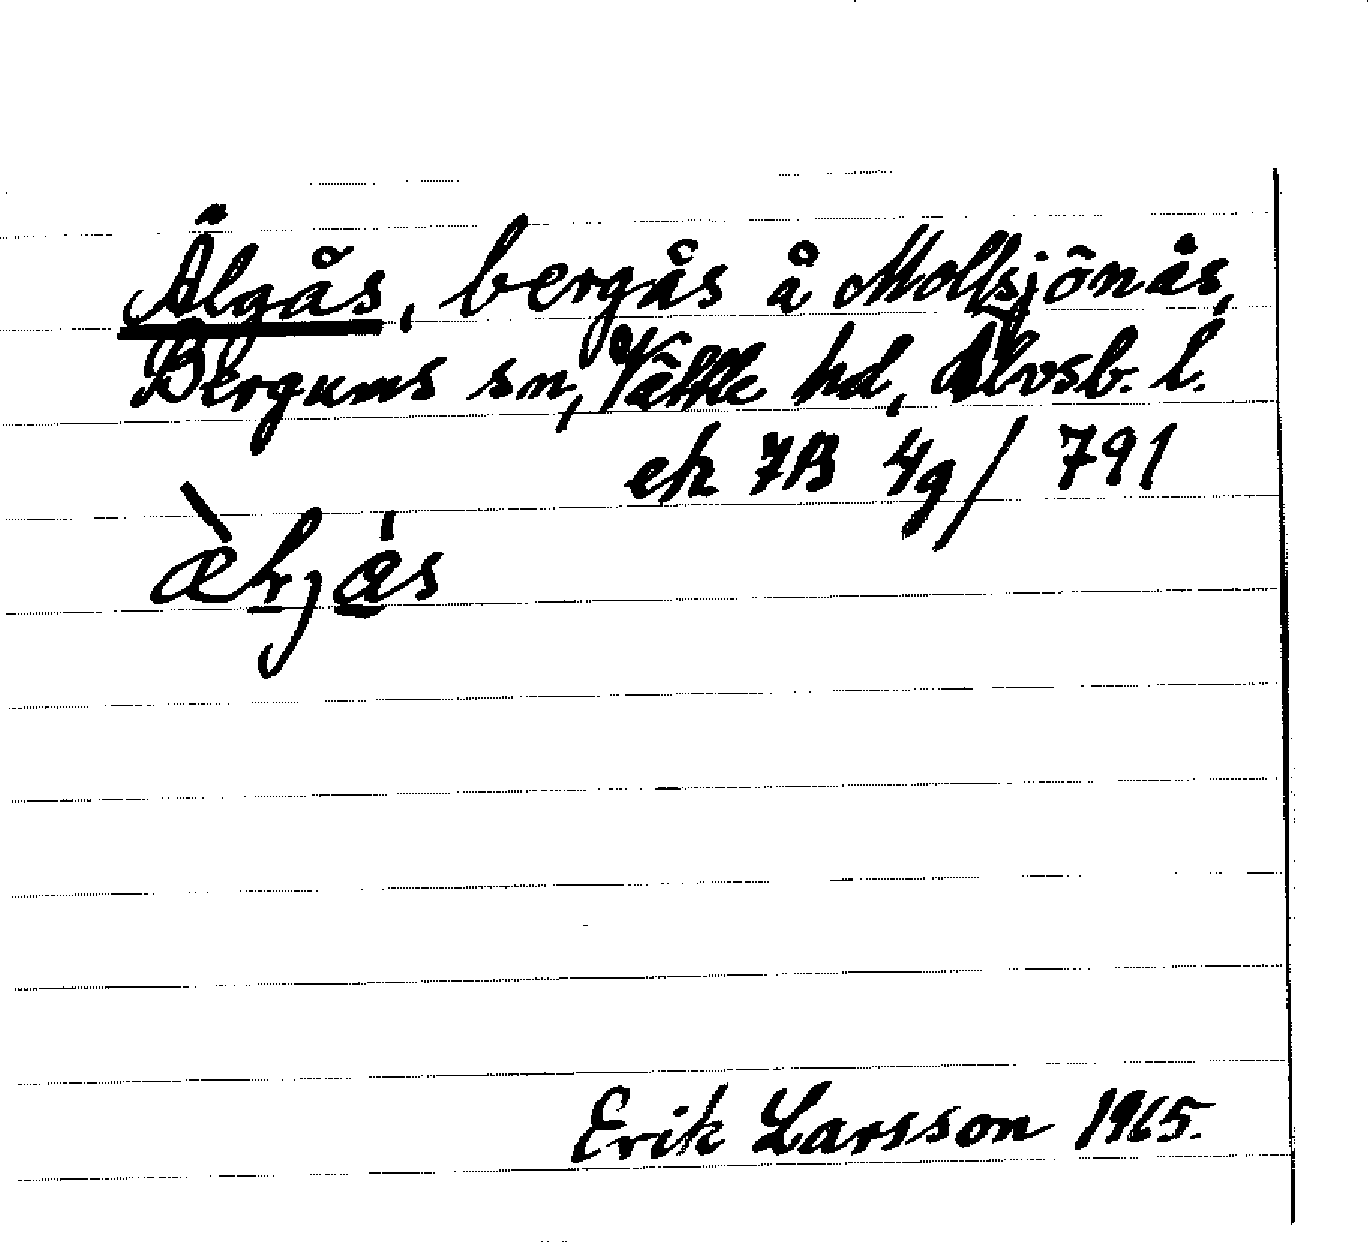 Älgås, bergås å Mollsjönås,
Bergums sn, Vättle hd, Älvsb. l.
ek 7B 4g/ 791
Erik Larsson 1965.